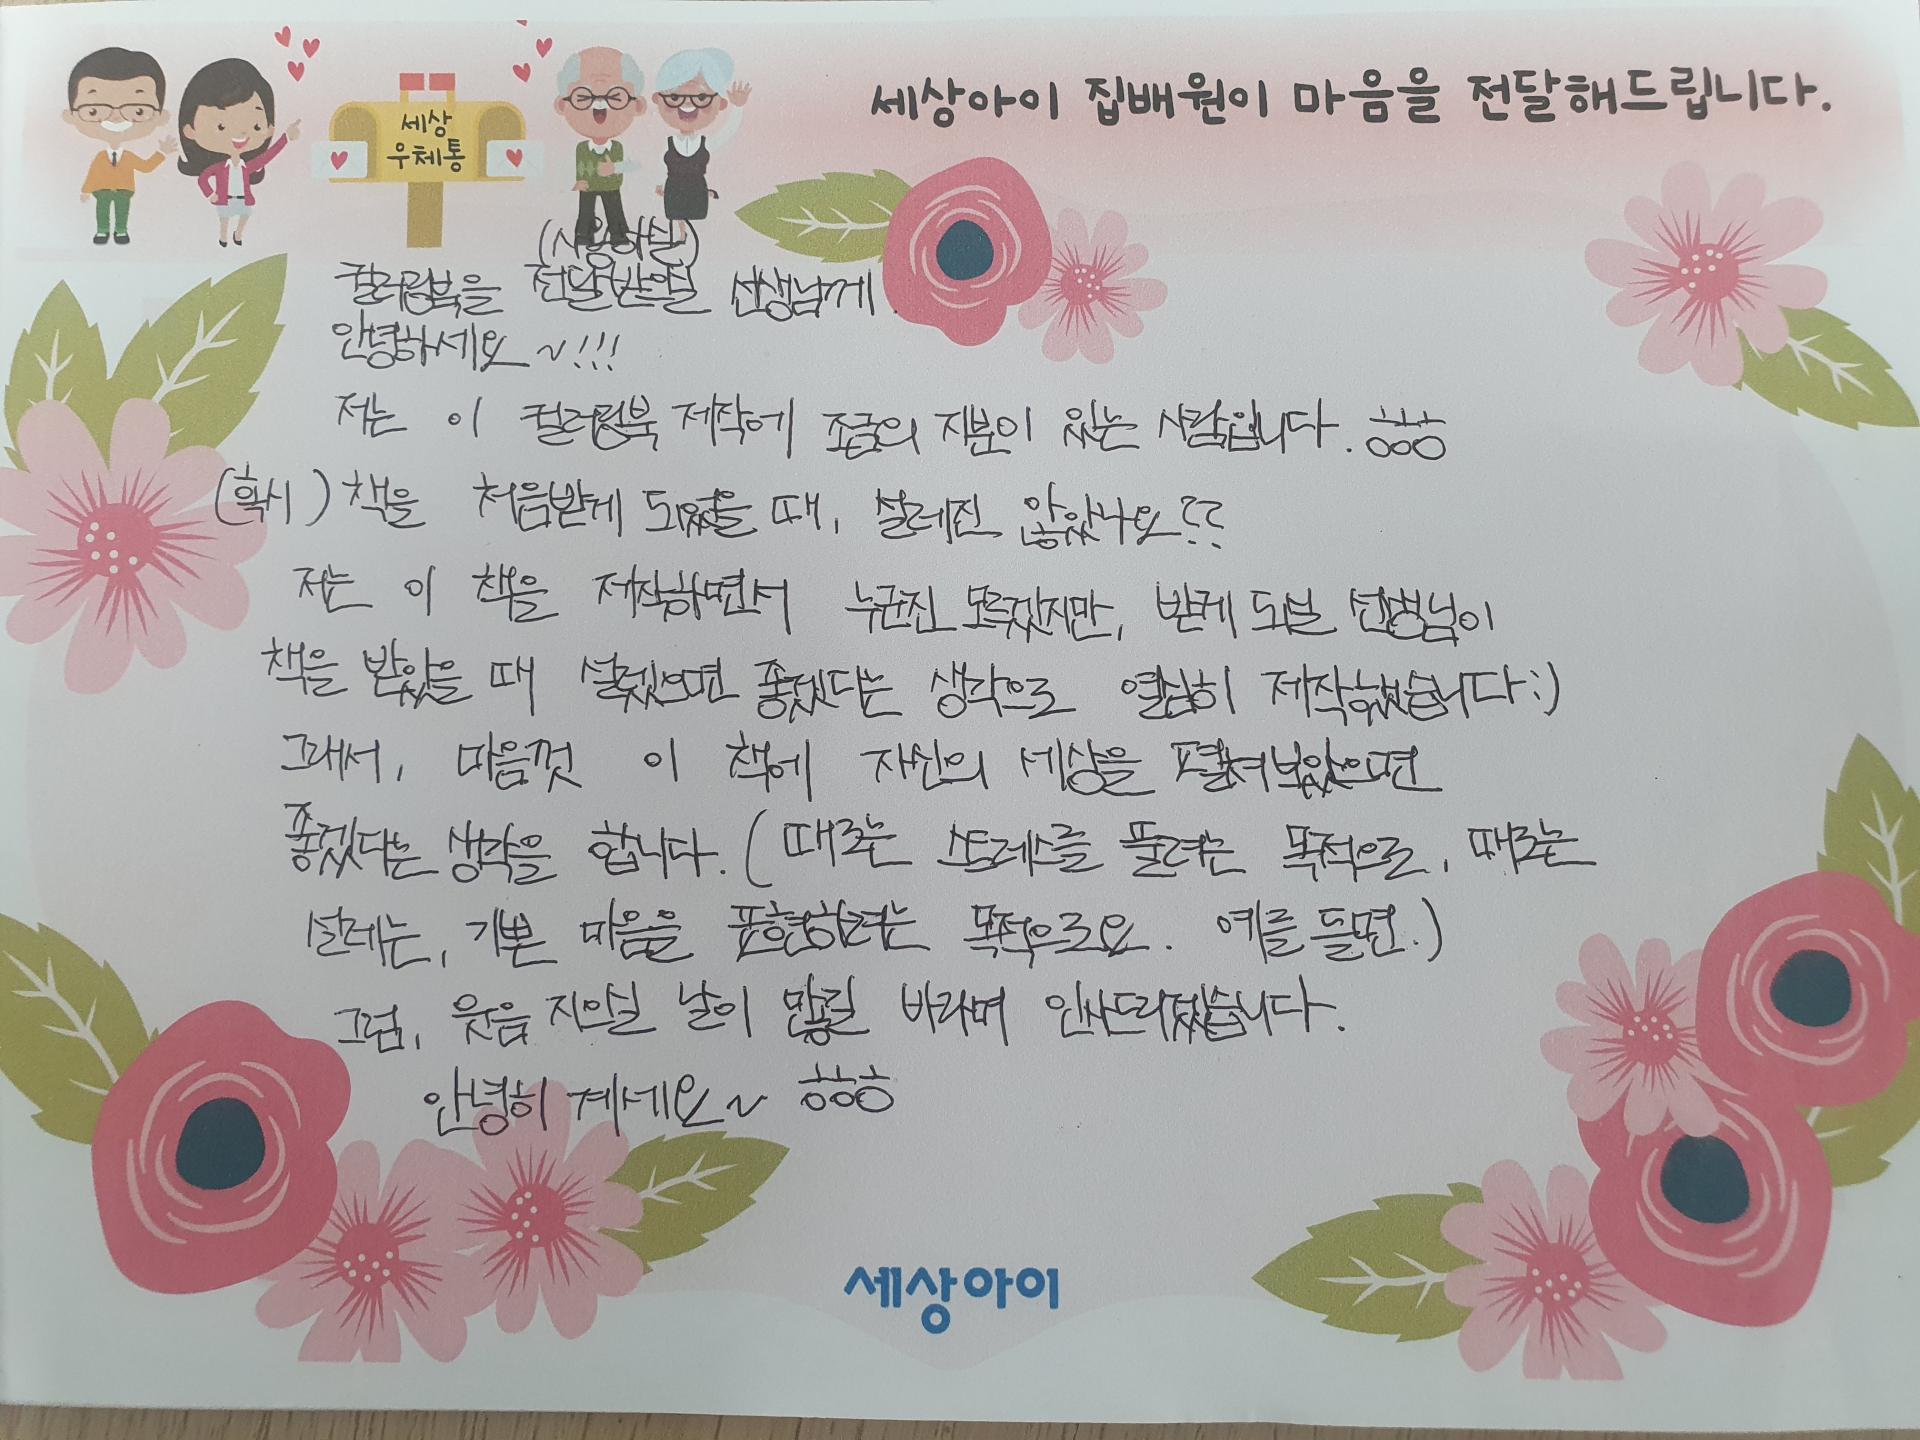 세상아이 집배원이 마음을 전달해드립니다.
세상
우체통
(사용하실)
컬러링북을 전달받으실 선생님께.
안녕하세요~!!!
저는 이 컬러링북 제작에 조금의 지분이 있는 사람입니다. ㅎㅎㅎ
(혹시) 책을 처음받게 되었을 때, 설레진 않았나요??
저는 이 책을 제작하면서 누군진 모르겠지만, 받게 되실 선생님이
책을 받았을 때 설렜으면 좋겠다는 생각으로 열심히 제작했습니다:)
그래서, 마음껏 이 책에 자신의 세상을 펼쳐보았으면
좋겠다는 생각을 합니다. (때로는 스트레스를 풀려는 목적으로, 때로는
설레는, 기쁜 마음을 표현하려는 목적으로요. 예를 들면.)
그럼, 웃음 지으실 날이 많길 바라며 인사드리겠습니다.
안녕히 계세요~ ㅎㅎㅎ
세상아이